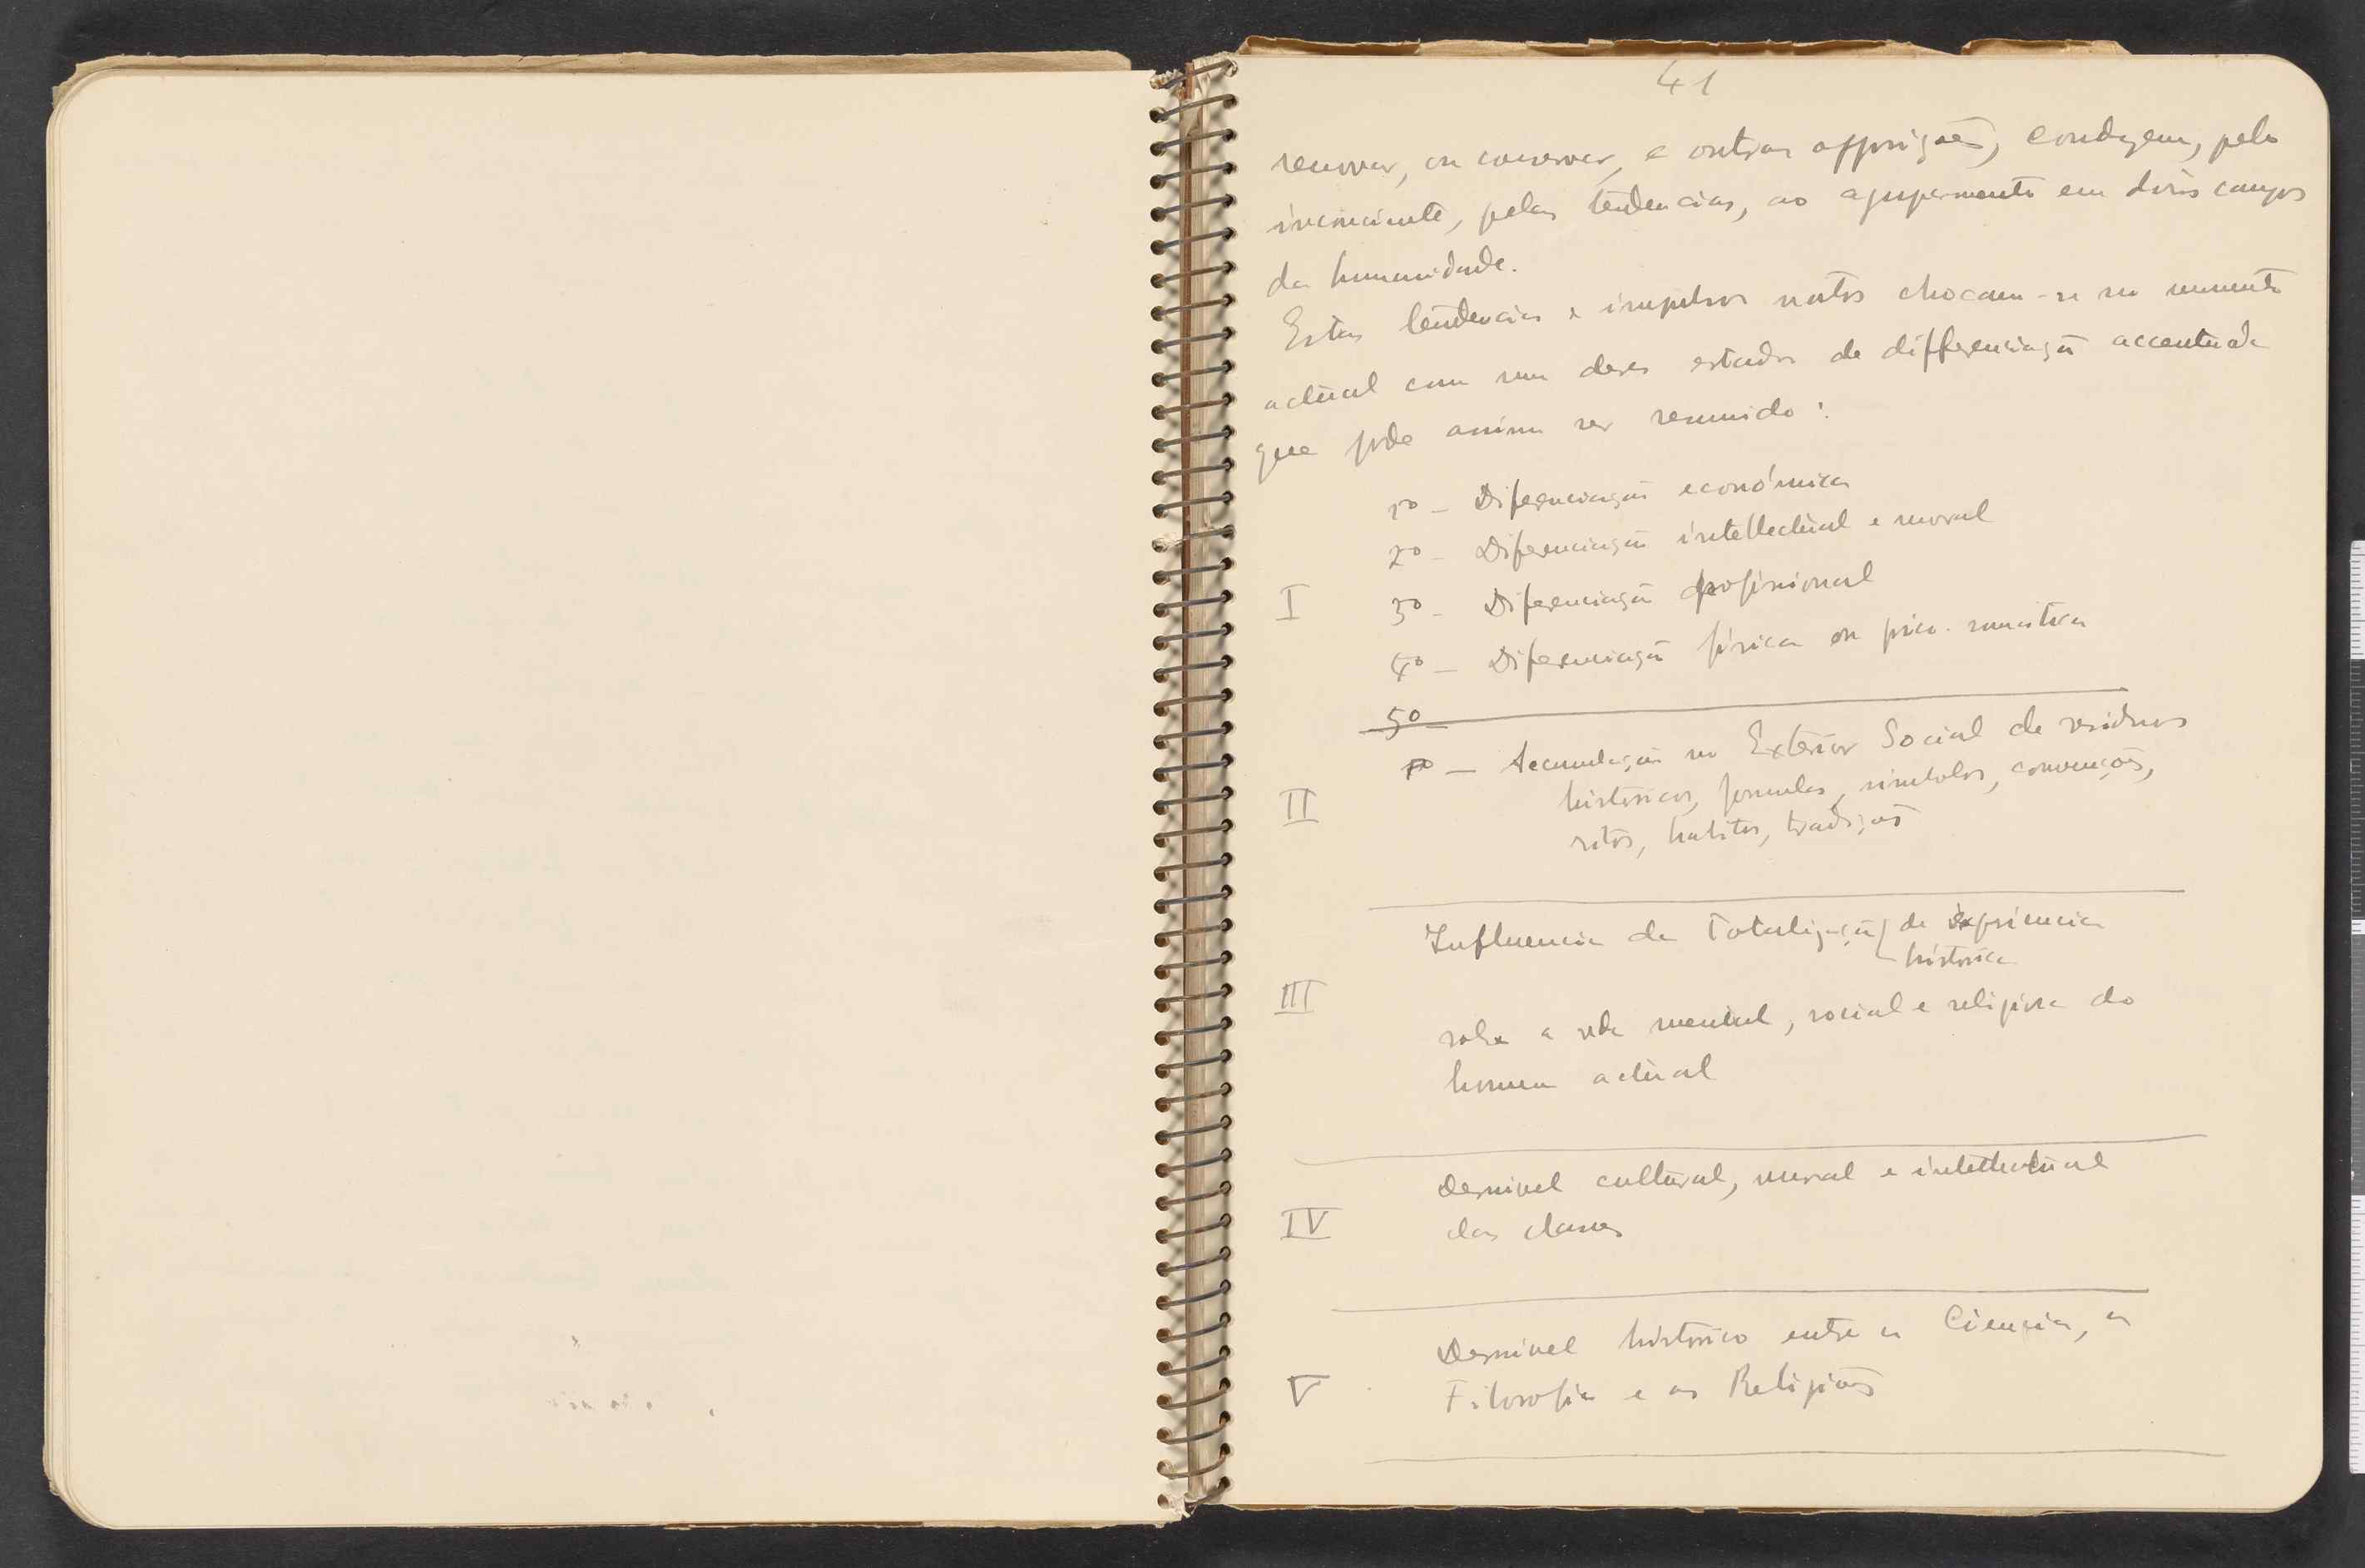 41
renovar, ou conservar, e outras opposições, conduzem, pelo
inconciente, pelas tendencias, ao agrupamento em dois campos
da humanidade.
Estas tendencias e impulsos natos chocam-se no momento
actual com um desses estados de differenciação accentuada
que pode assim ser resumido:
1º — Diferenciação económica
2º — Diferenciação intellectual e moral
I 3º — Diferenciação profissional
4º — Diferenciação física ou psico-somatica
5º —
— Accumulação no Exterior Social de residuos
II historicos, formulas, simbolos, convenções,
ritos, habitos, tradições
Influencia da Totalização de experiencia
historica
III
sobre a vida mental, social e religiosa do
homem actual
Desnivel cultural, moral e intellectual
IV das classes
Desnivel historico entre a Ciencia, a
V Filosofia e as Religiões